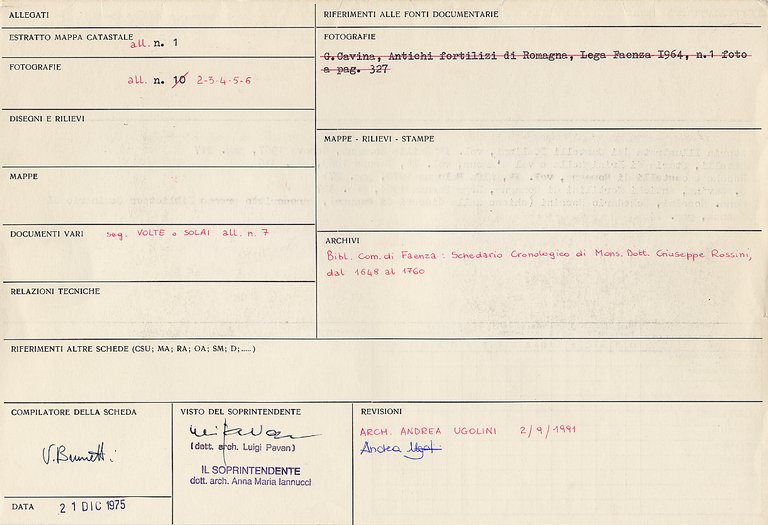 ALLEGATI
ESTRATTO MAPPA CATASTALE all. n. 1
FOTOGRAFIE
all. n. 10 2-3-4-5-6
DISEGNI E RILIEVI
MAPPE
DOCUMENTI VARI seg. VOLTE o SOLAI all. n. 7
RELAZIONI TECNICHE
RIFERIMENTI ALLE FONTI DOCUMENTARIE
FOTOGRAFIE
G.Cavina, Antichi fortilizi di Romagna, Lega Faenza I964, n.1 foto
a pag. 327
MAPPE - RILIEVI - STAMPE
ARCHIVI
Bibl. Com. di Faenza : Schedario Cronologico di Mons. Dott. Giuseppe Rossini,
dal 1648 al 1760
RIFERIMENTI ALTRE SCHEDE (CSU; MA; RA; OA; SM; D;.....)
COMPILATORE DELLA SCHEDA
DATA 21 DIC 1975
VISTO DEL SOPRINTENDENTE
(dott. arch. Luigi Pavan)
IL SOPRINTENDENTE
dott. arch. Anna Maria Iannucci
REVISIONI
ARCH. ANDREA UGOLINI 2/9/1991
Andrea